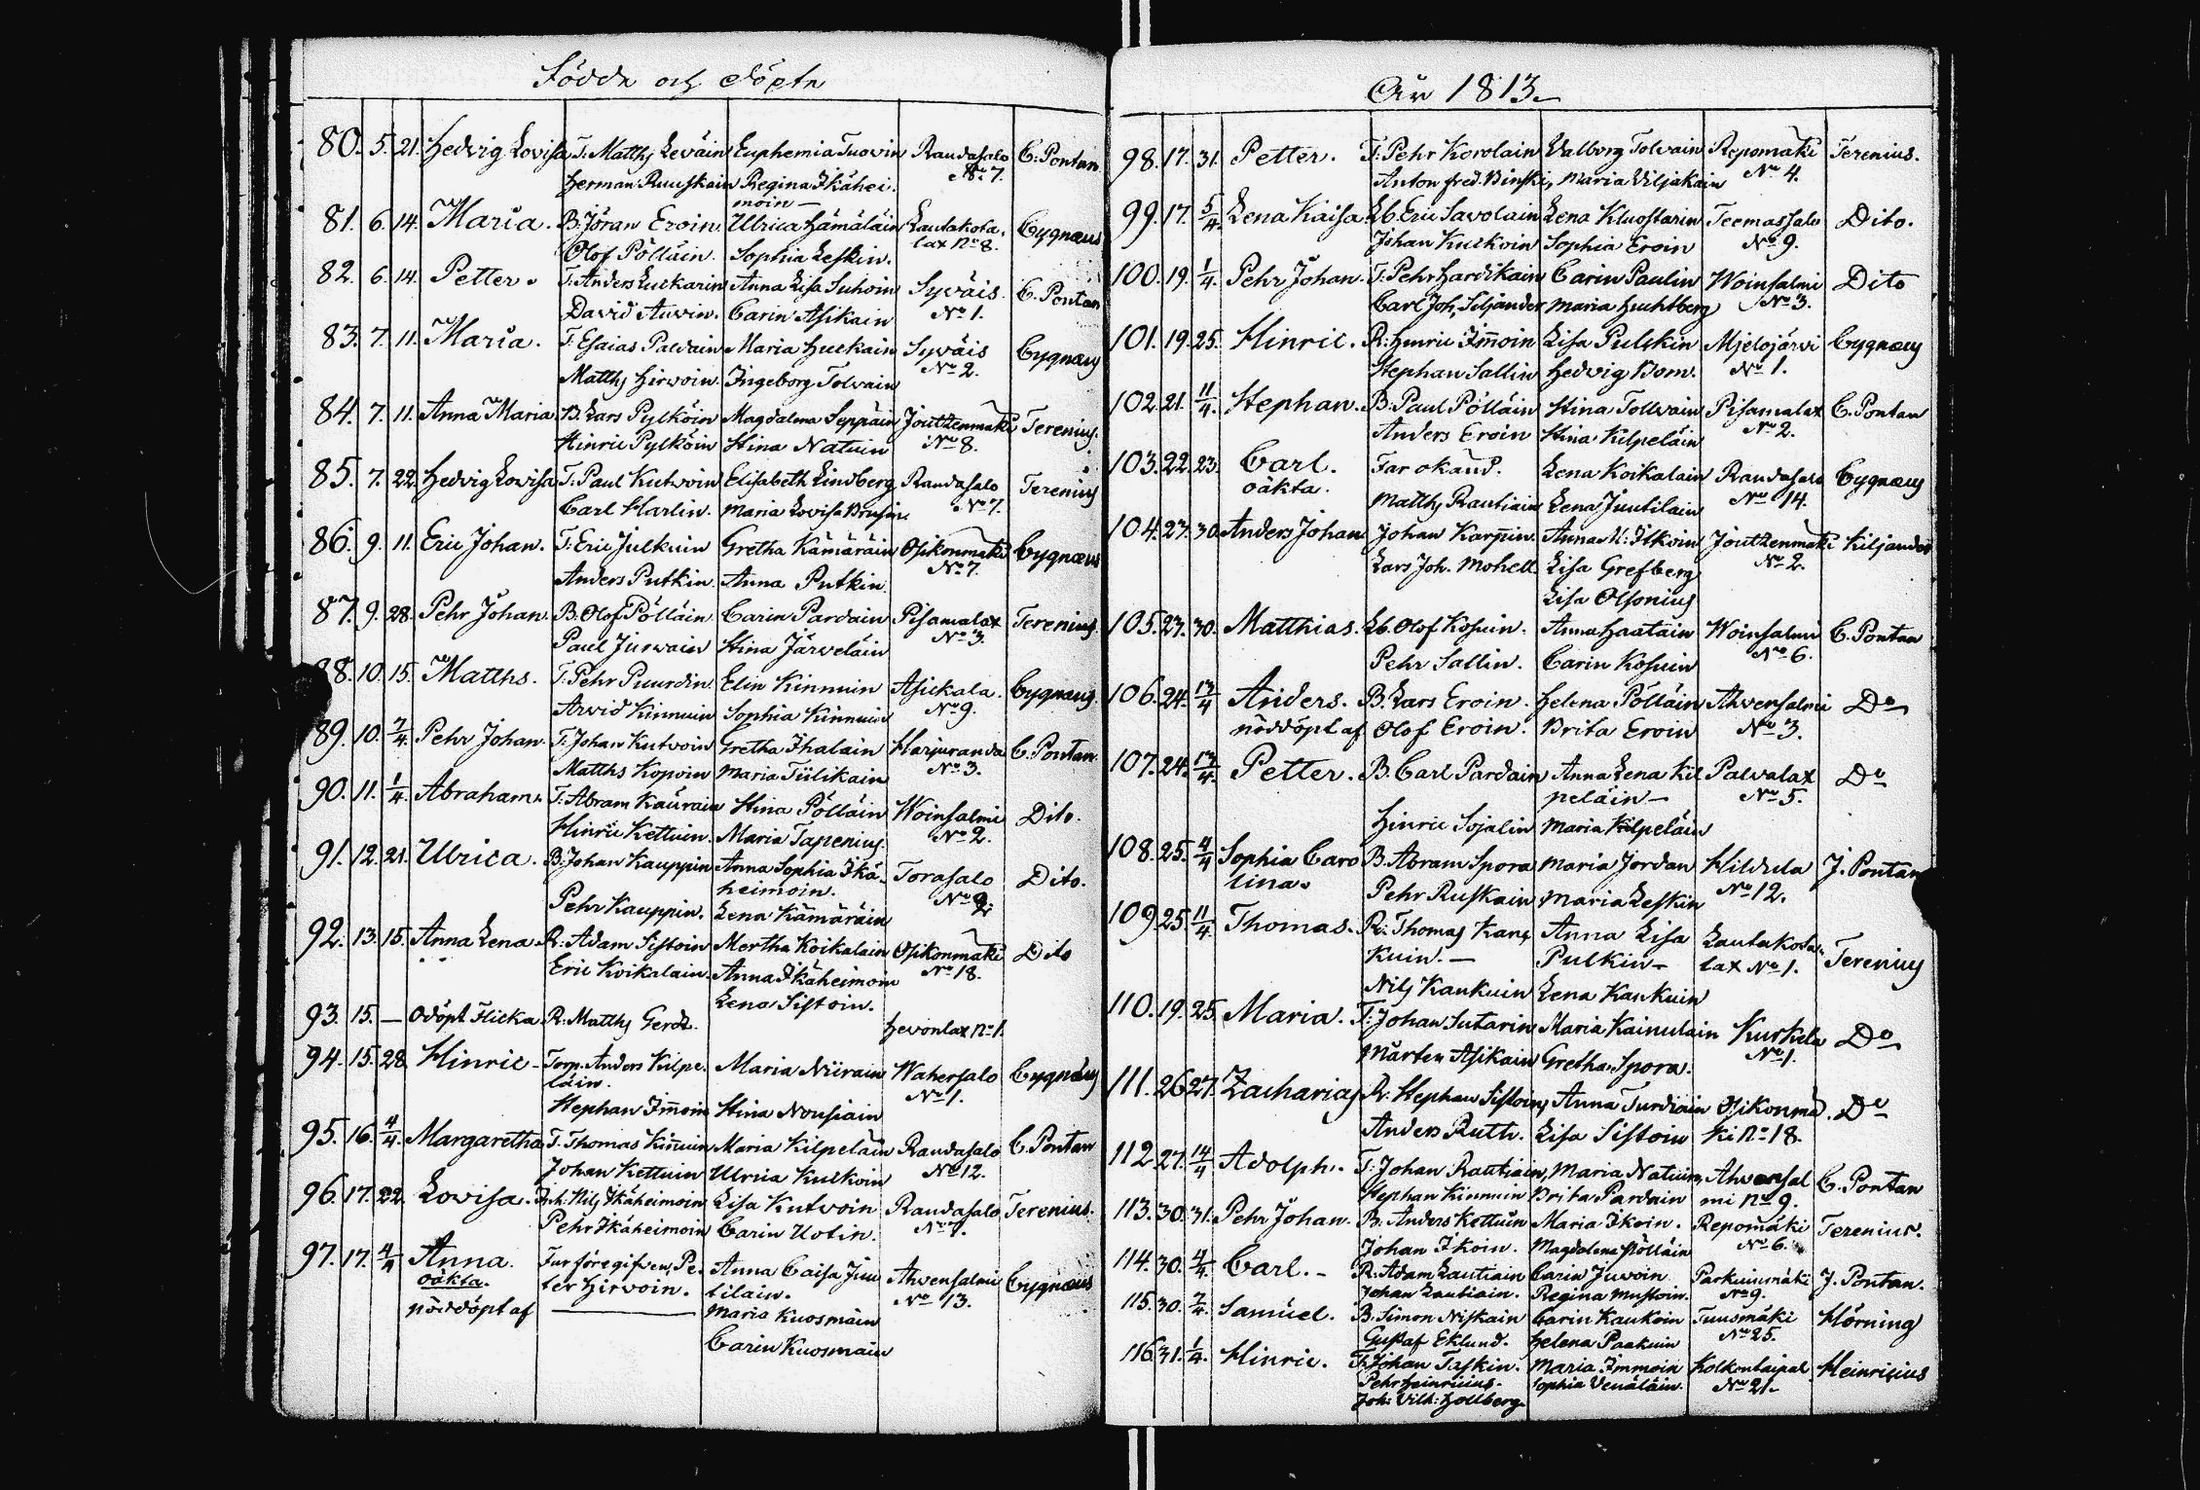 Födde och döpte
80. 5. 21. Hedvig Lovisa T. Matths Leväin Euphemia Tuovin Randasalo C. Pontan
Herman Ruuskain Regina Ikähei. No 7.
moin —
81. 6. 14. Maria. B. Jöran Eroin. Ulrica Hämäläin Lautakota. Cygnæus
Olof Pölläin. Sophia Leskin. lax No 8.
82. 6. 14. Petter. T. Anders Luckarin Anna Lisa Suhoin Syväis C. Pontan
David Auvin. Carin Asikain No 1.
83. 7. 11. Maria. T. Esaias Parvain Maria Huckain Syväis Cygnæus
Matths Hirvoin. Ingeborg Tolvain No 2.
84. 7. 11. Anna Maria B. Lars Pylköin Magdalena Seppäin Joutzenmäki Terenius.
Hinric Pylköin Stina Natuin No 8.
85. 7. 22. Hedvig Lovisa T. Paul Kutvoin Elisabeth Lindberg Randasalo Terenius
Carl Harlin. Maria Lovisa Brusin. No 7.
86. 9. 11. Eric Johan. T. Eric Julkuin Gretha Kämäräin Osikonmäki Cygnæus
Anders Putkin. Anna Putkin. No 7.
87. 9. 28. Pehr Johan. B. Olof Pölläin Carin Pardain Pisamalax Terenius
Paul Jurvain Stina Järveläin No 3.
88. 10. 15. Matths. T. Pehr Puurdin. Elin Kinnuin Asickala. Cygnæus.
Arvid Kinnuin Sophia Kinnuin No 9.
89. 10. 7/4 Pehr Johan. T. Johan Kutvoin Gretha Ihalain Harjuranda C. Pontan
Matths Kopoin Maria Tiilikain No 3.
90. 11. 1/4. Abraham. T. Abram Kaurain Stina Pölläin Woinsalmi Dito.
Hinric Kettuin. Maria Tapenius. No 2.
91. 12. 21. Ulrica. B. Johan Kauppin Anna Sophia Ikä- Torasalo Dito.
heimoin. No 2.
Pehr Kauppin. Lena Kämäräin
92. 13. 15. Anna Lena R. Adam Sistoin Mertha Koikalain Osikonmäki Dito
Eric Koikalain. Anna Ikäheimoin No 18.
Lena Sistoin.
93. 15. — Odöpt Flicka R. Matths Gerdt. Hevonlax No 1.
94. 15. 28. Hinric Torp. Anders Kilpe. Maria Niirain Wahersalo Cygnæus
läin. No 1.
Stephan Immoin Stina Nousiain
95. 16. 4/4. Margaretha T. Thomas Kinnuin Maria Kilpeläin Randasalo C. Pontan
Johan Kettuin Ulrica Kulkoin No 12.
96. 17. 22. Lovisa. Inh. Nils Ikäheimoin Lisa Kutvoin Randasalo Terenius.
Pehr Ikäheimoin Carin Uotin. No 7.
97. 17. 4/4 Anna. Fur föregifven, Pe- Anna Caisa Juu Ahvensalmi Cygnæus
oäkta. ter Hirvoin. tilain. No 13.
nöddöpt af Maria Kuosmain
Carin Kuosmain
År 1813.
98. 17. 31. Petter. T. Pehr Korolain Valborg Tolvain Repomäki Terenius.
Anton Fred. Binski, Maria Viljakain No 4.
99. 17. 5/4. Lena Kaisa Lb. Eric Savolain Lena Kluostarin Teemassalo Dito.
Johan Kulkoin Sophia Eroin No 9.
100. 19. 1/4. Pehr Johan. T. Pehr Hardikain Carin Paulin Woinsalmi Dito
Carl Joh. Siljander Maria Huchtberg No 3.
101. 19. 25. Hinric. R. Hinric Immoin Lisa Pulskin Mjelojärvi Cygnæus
Stephan Sallin Hedvig Dom. No 1.
102. 21. 11/4. Stephan. B. Paul Pölläin Stina Tollvain Pisamalax C. Pontan
Anders Eroin Stina Kilpeläin No 2.
103. 22. 23. Carl. Far okänd. Lena Koikalain Randasalo Cygnæus
oäkta. No 14.
Matths Rautiain Lena Juutilain
104. 27. 30. Anders Johan Johan Karpin. Anna U. Itkoin Joutzenmäki Kiljander
Lars Joh. Mohell. Lisa Grefberg No 2.
Lisa Olsonius
105. 27. 30. Matthias. Lb. Olof Kosuin. Anna Haatain Woinsalmi C. Pontan
Pehr Sallin. Carin Kosuin No 6.
106. 24. 13/4 Anders. B. Lars Eroin. Helena Pölläin Ahvensalmi Do
nöddöpt af Olof Eroin. Brita Eroin No 3.
107. 24. 13/4. Petter. B. Carl Pardain Anna Lena Kil Parvalax Do
peläin — No 5.
Hinric Sojalin Maria Kilpeläin
108. 25. 4/4 Sophia Caro B. Abram Spora Maria Jordan Hildula J. Pontan
lina. Pehr Ruskain Maria Leskin No 12.
109. 25. 11/4 Thomas. R. Thomas Kan, Anna Lisa Lautakota- Terenius
kuin. — Pulkin — lax No 1.
Nils Kaukuin Lena Kaukuin
110. 19. 25. Maria. T. Johan Sutarin Maria Kainulain Kurkela Do
Mårten Asikain Gretha Spora. No 1.
111. 26. 27. Zacharias R. Stephan Sistoin, Anna Turdiain Osikonmä. Do
Anders Ruth. Lisa Sistoin ki No 18.
112. 27. 14/4 Adolph. T. Johan Rautiain, Maria Natuin, Ahvensal C. Pontan
Stephan Kinnuin Brita Pardain mi No 9.
113. 30. 31. Pehr Johan. B. Anders Kettuin Maria Ikoin. Repomäki Terenius.
Johan Ikoin. Magdalena Pölläin No 6.
114. 30. 4/4. Carl. — R. Adam Lautiain Carin Juvoin Parkuinmäki J. Pontan.
Johan Lautiain. Regina Mustoin. No 9.
115. 30. 7/4. Samuel. B. Simon Niskain Carin Kaukoin Tuusmäki Hörning
Gustaf Eklund. Helena Paakuin No 25.
116. 31. 1/4. Hinric. T. Johan Taskin. Maria Immoin Kolkontaipal Heinricius
Pehr Heinricius. Sophia Venäläin. No 21.
Joh. Vilh. Hollberg.